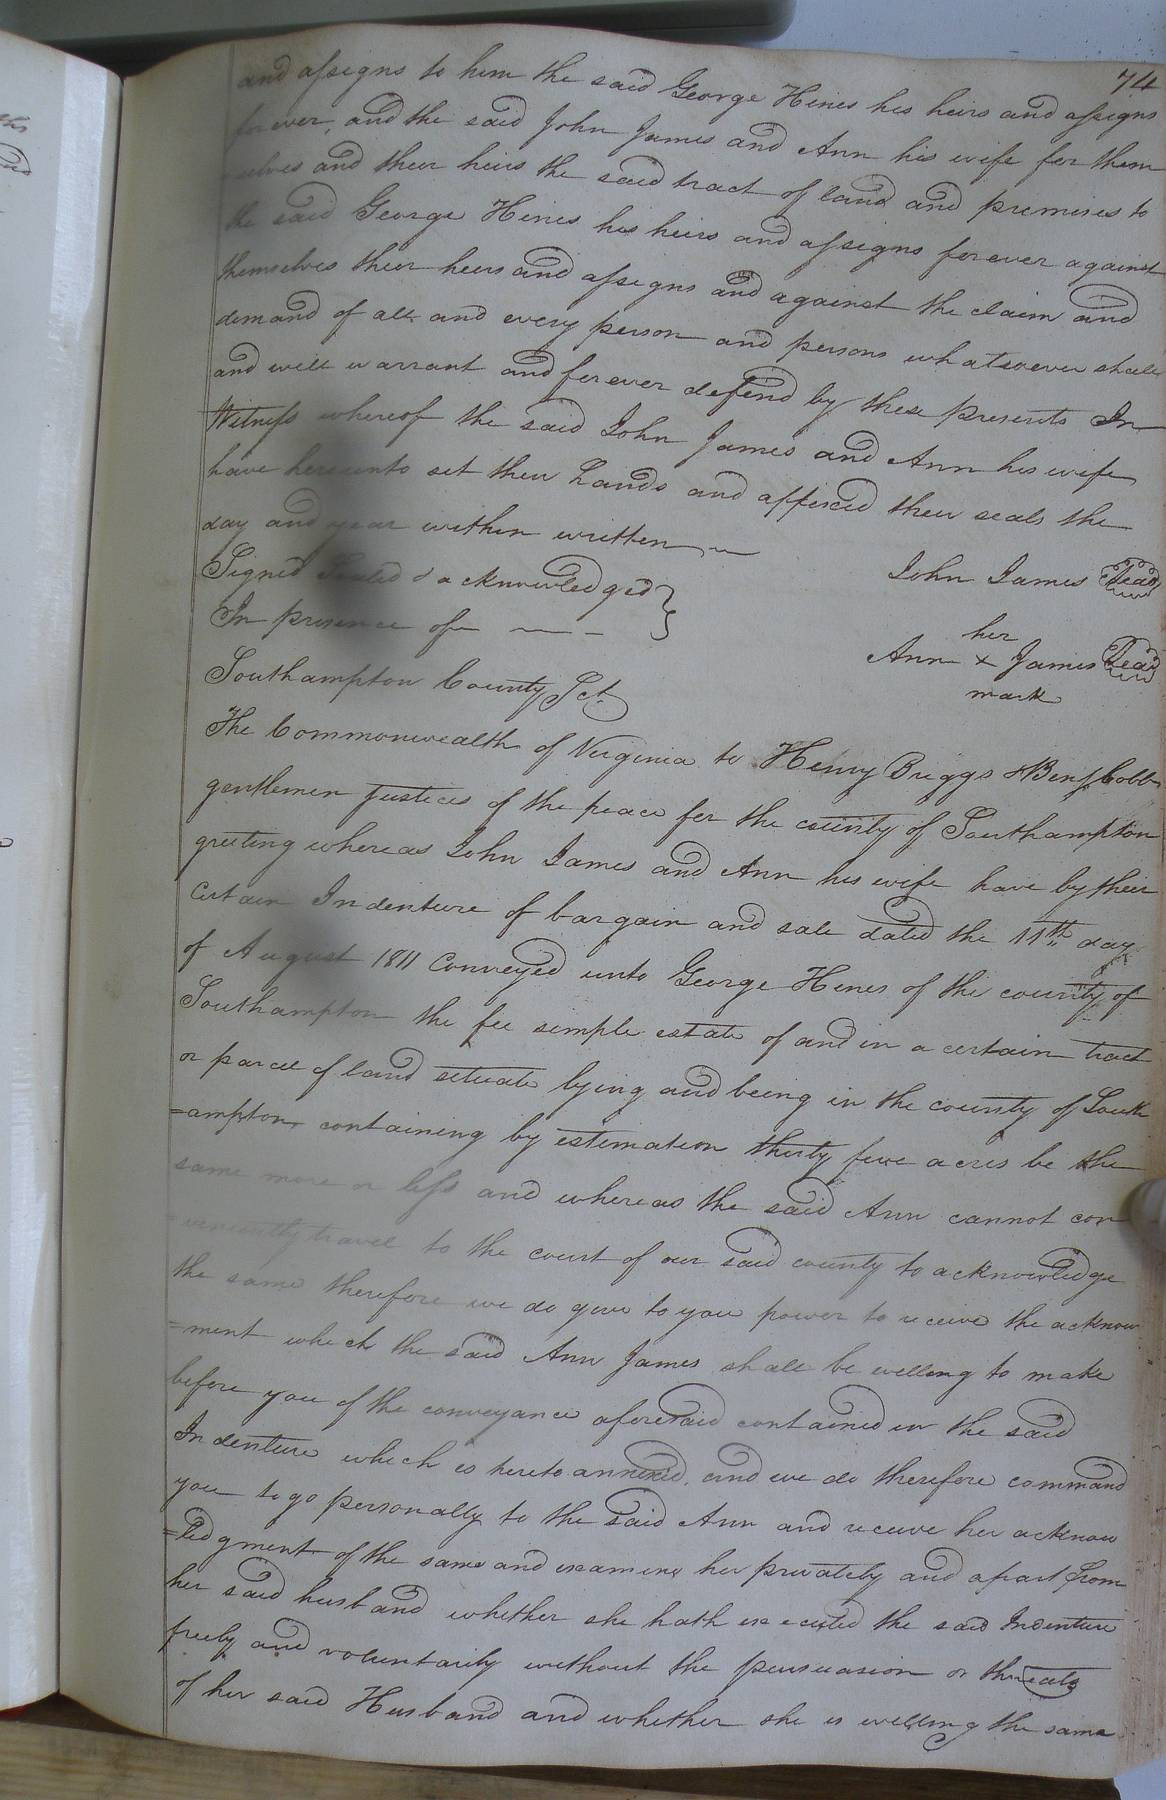 74
and assigns to him the said George Hines his heirs and assigns
forever, and the said John James and Ann his wife for them
=selves and their heirs the said tract of land and premises to
the said George Hines his heirs and assigns forever against
themselves their heirs and assigns and against the claim and
demand of all and every person and persons whatsoever shall
and will warrant and forever defend by these presents In
Witness whereof the said John James and Ann his wife
have hereunto set their hands and affixed their seals the
day and year within written
Signed Sealed & acknowledged }
In presence of
John James Seal
her
Ann x James Seal
mark
Southampton County Sct.
The Commonwealth of Virginia to Henry Briggs & Benj. Cobb
gentlemen Justices of the peace for the county of Southampton
greeting whereas John James and Ann his wife have by their
certain Indenture of bargain and sale dated the 11th day
of August 1811 Conveyed unto George Hines of the county of
Southampton the fee simple estate of and in a certain tract
or parcel of land situate lying and being in the county of South
=ampton containing by estimation thirty five acres be the
same more or less and whereas the said Ann cannot con
=veniently travel to the court of our said county to acknowledge
the same therefore we do give to you power to receive the acknow
=ment which the said Ann James shall be willing to make
before you of the conveyance aforesaid contained in the said
Indenture which is hereto annexed, and we do therefore command
you to go personally to the said Ann and receive her acknow
=ledgment of the same and examine her privately and apart from
her said husband whether she hath executed the said Indenture
freely and voluntarily without the persuasion or threats
of her said Husband and whether she is willing the same